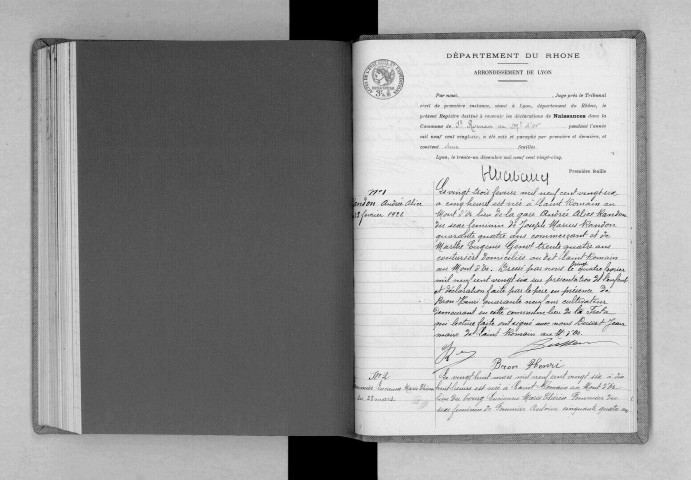 DÉPARTEMENT DU RHONE
ARRONDISSEMENT DE LYON
Par nous, , Juge près le Tribunal
civil de première instance, séant à Lyon, département du Rhône, le
présent Registre destiné à recevoir les déclarations de Naissances dans la
Commune de St Romain au Mt d'or pendant l'année
mil neuf cent vingt-six, a été coté et paraphé par première et dernière, et
contient feuilles.
Lyon, le trente-un décembre mil neuf cent vingt-cinq.
Première feuille
No 1
Randon Andrée Alice
23 février 1926
Le vingt trois février mil neuf cent vingt six
a cinq heures est née à Saint Romain au
Mont d'Or lieu de la gare Andrée Alice Randon
du sexe féminin de Joseph Marius Randon
quarante quatre ans commerçant et de
Marthe Eugénie Genet trente quatre ans
couturière domiciliés au dit Saint Romain
au Mont d'Or. Dressé par nous le quatre février
mil neuf cent vingt six sur présentation de l'enfant
et déclaration faite par le père en présence de
Bron Henri quarante neuf ans cultivateur
demeurant en cette commune lieu de la
qui lecture faite ont signé avec nous Jean
maire de Saint Romain au Mt d'Or.
Bron Henri
No 2
Lucienne Marie Thérèse
28 mars
Le vingt huit mars mil neuf cent vingt six à dix
huit heures est née à Saint Romain au Mont d'Or
lieu du bourg Lucienne Marie Thérèse Pommier du
sexe féminin de Pommier Antoine cinquante quatre ans